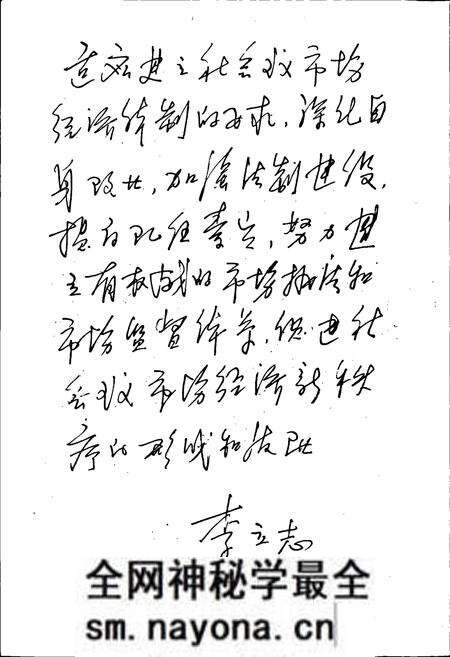 适应建立社会主义市场
经济体制的要求，深化自
身改革，加强法制建设，
提高队伍素质，努力建
立有权威的市场执法和
市场监督体系，促进社
会主义市场经济新秩
序的形成和发展
李立志
全网神秘学最全
sm.nayona.cn